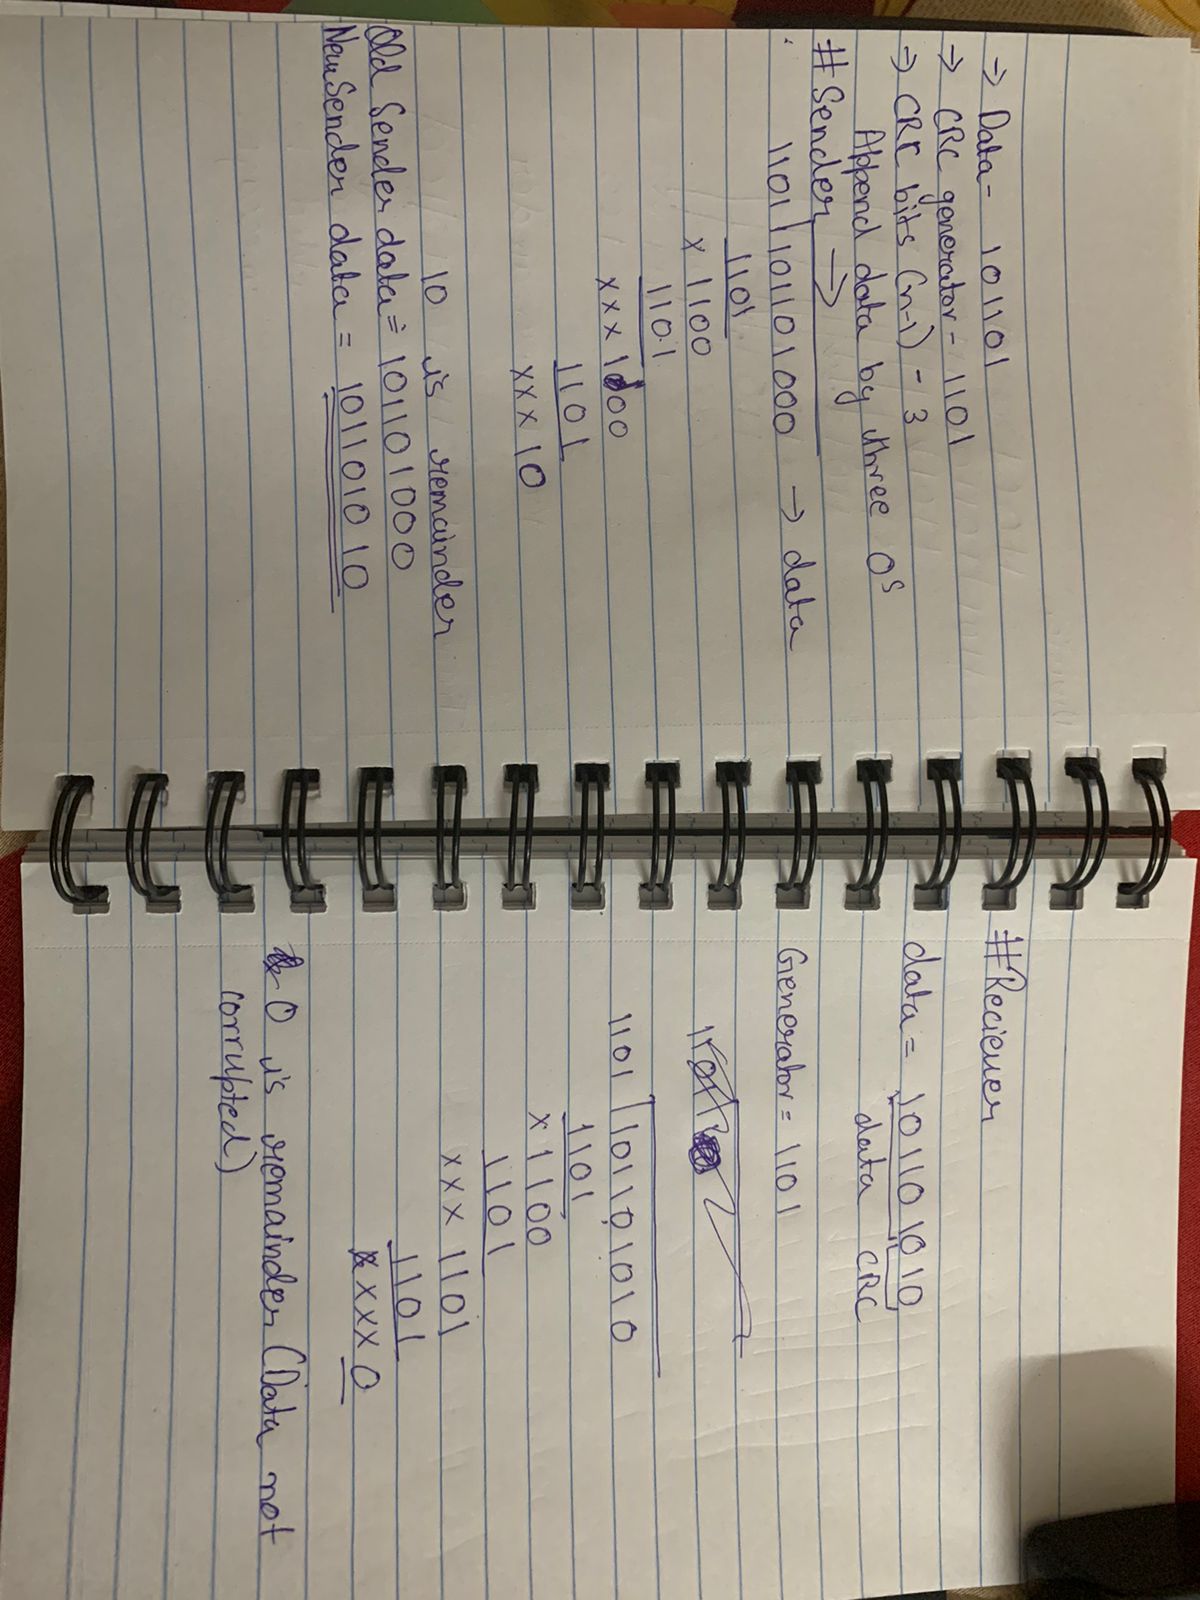 → Data- 101101
→ CRC generator- 1101
→ CRC bits (n-1) - 3
Append data by three 0s
#Sender →
1101 101101000 → data
1101
x 1100
1101
xxx 1000
1101
xxx 10
10 is remainder
Old Sender data = 101101000
New Sender data = 101101010
#Reciever
data = 101101010
data CRC
Generator = 1101
1101 101101010
1101
x 1100
1101
xxx 1101
1101
xxxx 0
0 is remainder (Data not
corrupted)